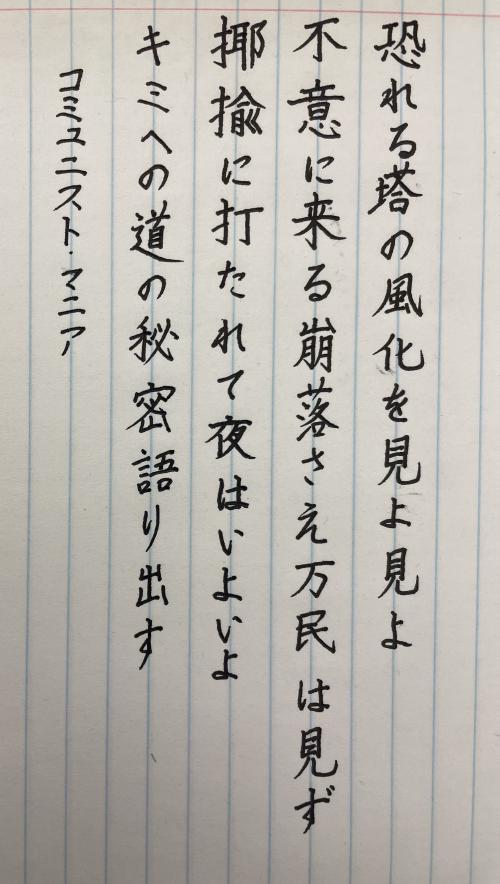 恐れる塔の風化を見よ見よ
不意に来る崩落さえ万民は見ず
揶揄に打たれて夜はいよいよ
キミへの道の秘密語り出す
コミュニスト・マニア